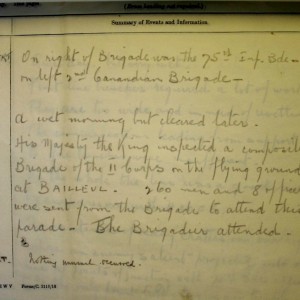 Summary of Events and Information.
On right of Brigade was the 75th Inf. Bde -
on left 2nd Canandian Brigade -
A wet morning but cleared later.
His Majesty the King inspected a composite
Brigade of the II Corps on the flying ground
at BAILLEUL. 260 men and 8 officers
were sent from the Brigade to attend this
parade - The Brigadier attended.
Nothing unusual occurred.
W V Forms/C. 2118/